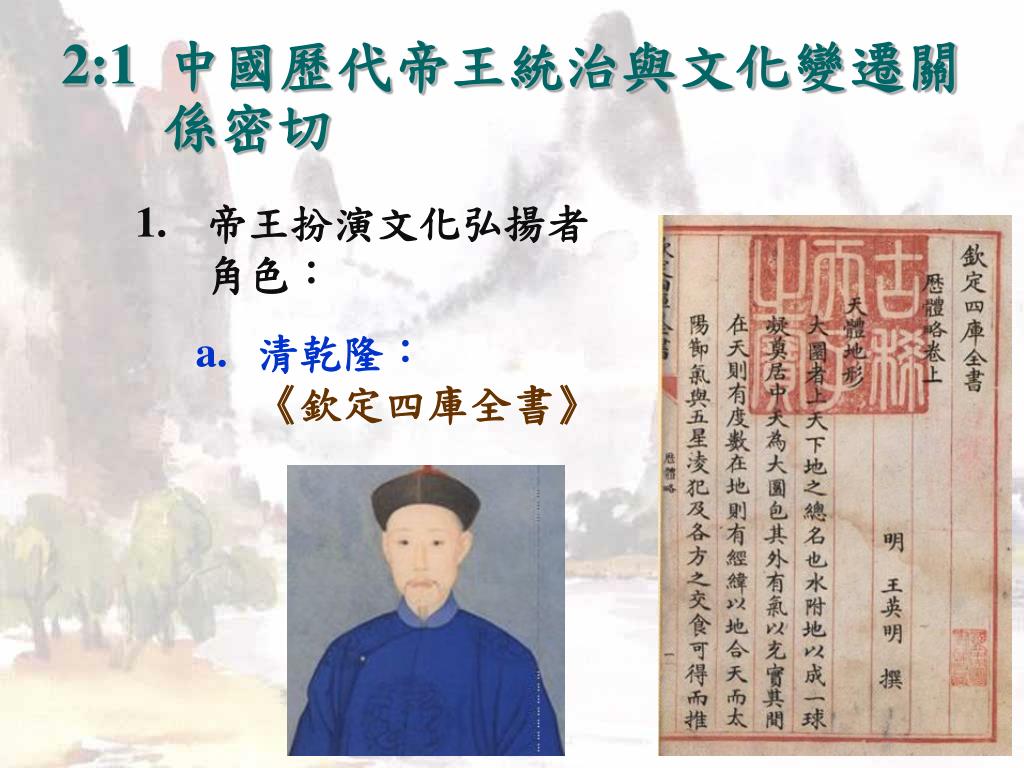 2:1 中國歷代帝王統治與文化變遷關
係密切
1. 帝王扮演文化弘揚者
角色：
a. 清乾隆：
《欽定四庫全書》
欽定四庫全書
厯體略卷上
明 王英明 撰
天體地形
大圜者上天下地之總名也水附地以成一球
凝奠居中天為大圜包其外有氣以充實其間
在天則有度數在地則有經緯以地合天而太
陽節氣與五星凌犯及各方之交食可得而推
厯體略
一
古稀天子之寶